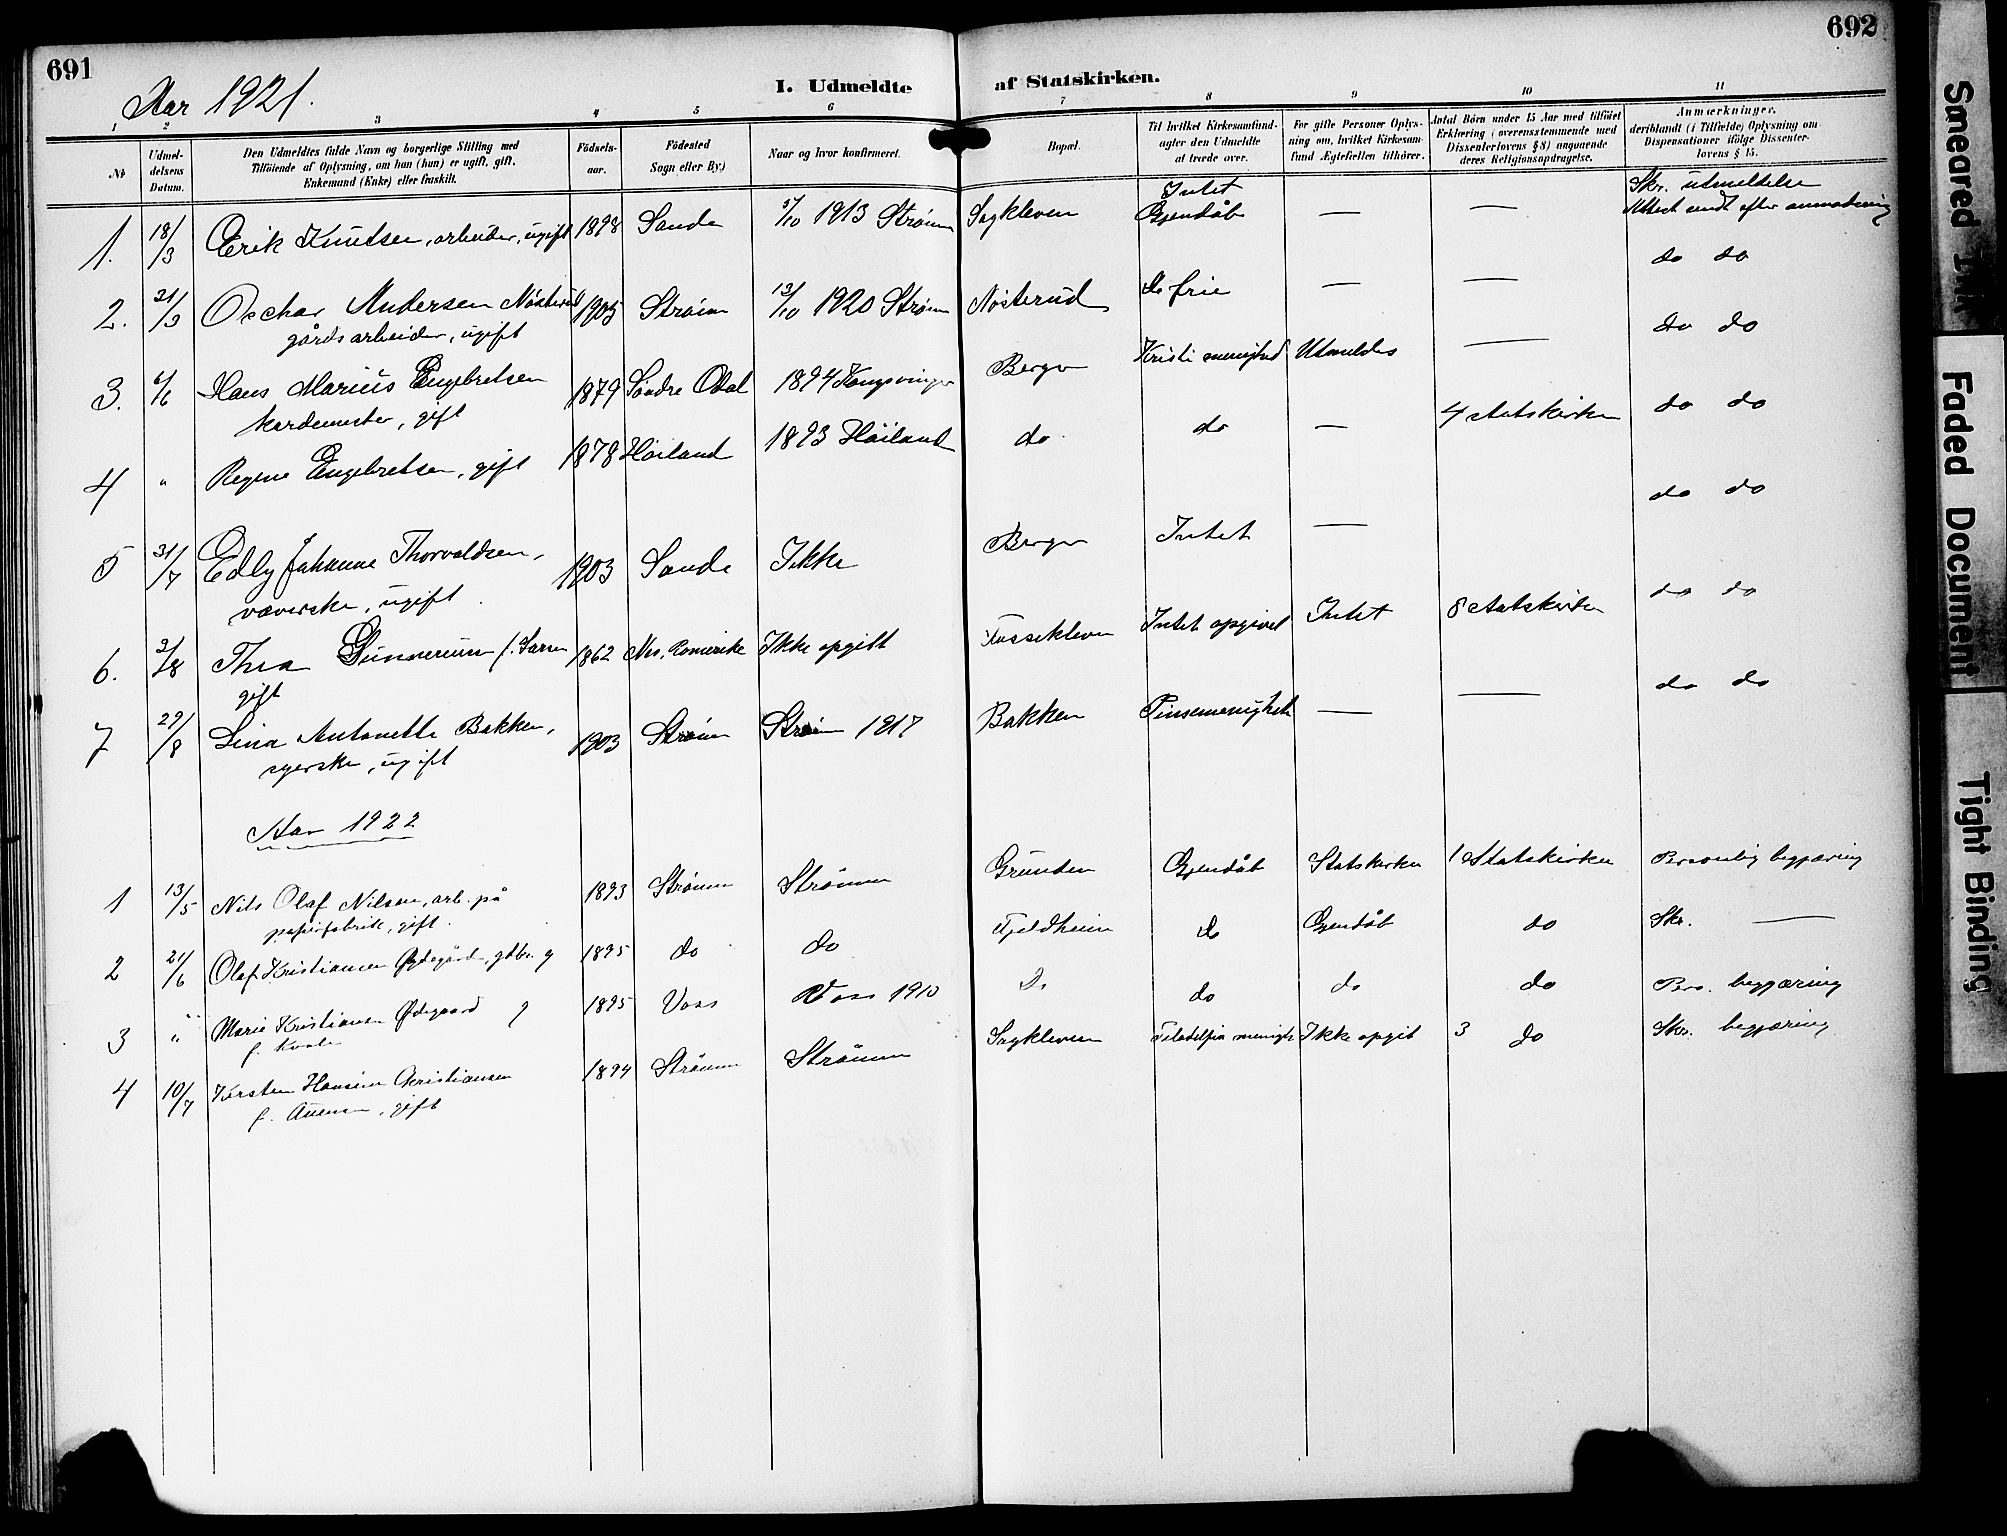 691
692
Aar 1921.
I. Udmeldte af Statskirken.
1 2 3 4 5 6 7 8 9 10 11
№
Udmel-
delsens
Datum.
Den Udmeldtes fulde Navn og borgerlige Stilling med
Tilføiende af Oplysning, om han (hun) er ugift, gift,
Enkemand (Enke) eller fraskilt.
Fødsels-
aar.
Fødested
(Sogn eller By.)
Naar og hvor konfirmeret.
Bopæl.
Til hvilket Kirkesamfund-
agter den Udmeldte
at træde over.
For gifte Personer Oplys-
ning om, hvilket Kirkesam-
fund Ægtefællen tilhører.
Antal Børn under 15 Aar med tilføiet
Erklæring i overensstemmende med
Dissenterlovens § 8) angaaende
deres Religionsopdragelse.
Anmærkninger,
deriblandt (i Tilfælde) Oplysning om
Dispensationer ifølge Dissenter-
lovens § 15.
1. 18/3 Erik Knutsen, arbeider, ugift 1898 Sande 5/10 1913 Strømm Sagkleven Intet Gjendåb — — Skr. utmeldelse
Attest sendt efter anmodning
2. 21/3 Oschar Andersen Nøsterud 1905 Strøm 13/10 1920 De frie — — do do
gårdsarbeider, ugift
3. 6/6 Hans Marius Engebretsen 1879 Søndre Odal 1894 Kongsvinger Berger Kristi menighed Utmeldes — do do
gift
4 " Regine Engebretsen, gift 1878 Høiland 1893 Høiland do do — 4 Statskirken do do
5 31/7 Edly Johanne Thorvaldsen, 1903 Sande Ikke Berger Intet — do do
væverske, ugift
6. 3/8 Thea 1862 Nes, Romerike Ikke opgitt Fossekleven Intet opgivet Intet 8 Statskirken do do
gift
7 29/8 Lina Antonette Bakken, 1903 Strøm Strøm 1917 Bakken Pinsemenighet — — do do
syerske, ugift
Aar 1922
1 13/5 Nils Olaf Nilsen, arb. på 1893 Strømm Strømm Grunden Gjendåb Statskirken 1 Statskirken Personlig begjæring
papirfabrik, gift.
2 21/6 Olaf Kristiansen Ødegård, gdbr. g 1895 do do Fjeldheim do Gjendåb do Skr. —
3 " Marie Kristiansen Ødegaard g 1895 Voss Voss 1910 do do do do Pers. begjæring
f. Kvale
4 10/7 Kirsten Hansine Christiansen 1894 Strømm Strømm Sagkleven Filadelfia menigh Ikke opgit 3 do Skr. begjæring
f. gift
Smeared Ink
Faded Document
Tight Binding